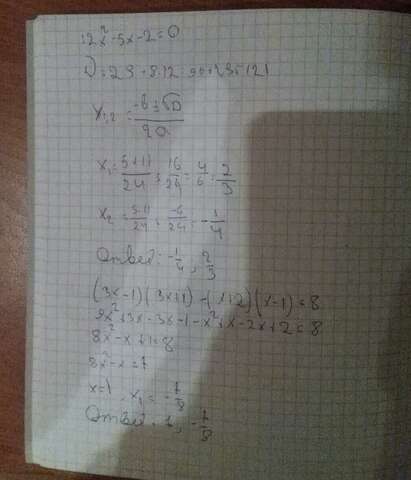 12x²-5x-2=0
D=25+8·12=25+96=121
x₁,₂ = (-b±√D)/2a
x₁=(5+11)/24=16/24=4/6=2/3
x₂=(5-11)/24=-6/24=-1/4
Ответ: -1/4, 2/3
(3x-1)(3x+1)-(x+2)(x-1)=8
9x²+3x-3x-1-x²+x-2x+2=8
8x²-x+1=8
8x²-x=7
x=1 x₁=-7/8
Ответ: 1, -7/8